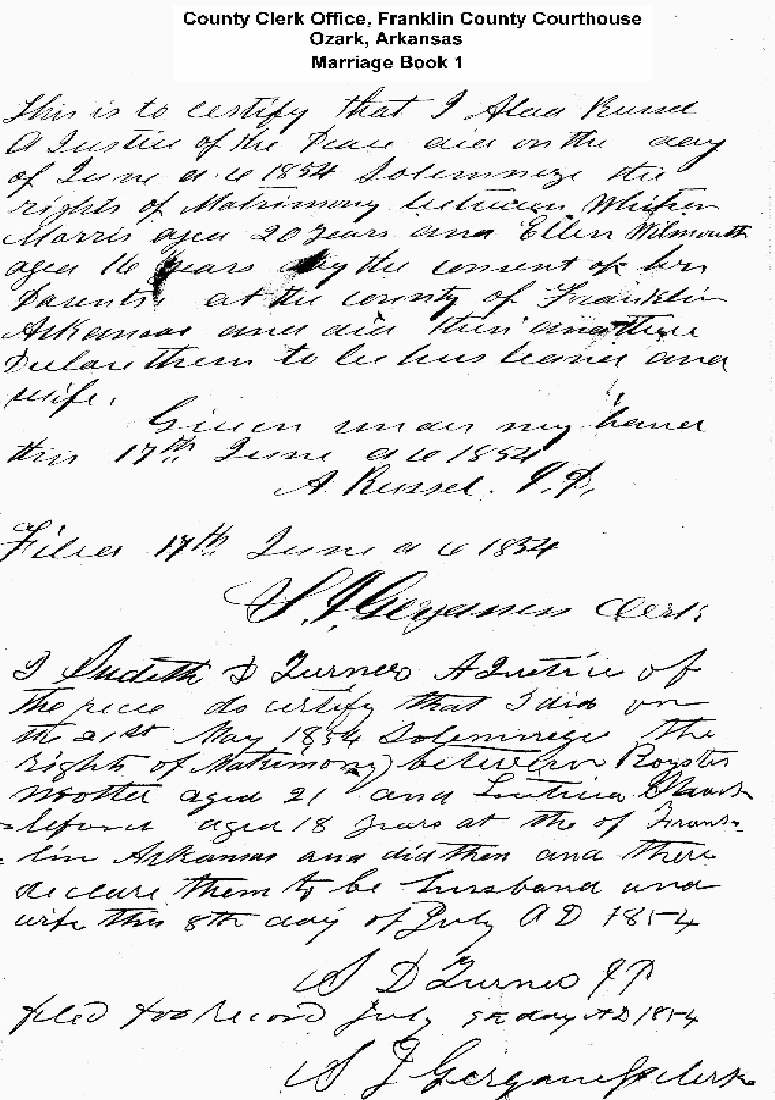 County Clerk Office, Franklin County Courthouse
Ozark, Arkansas
Marriage Book 1
This is to certify that I Russel
A Justice of the Peace did on the day
of June 1854 Solemnize the
rights of Matrimony between
Morris aged 20 years and Ellen Wilmouth
aged 16 years by the consent of her
Parents at the county of Franklin
Arkansas and did then and there
Declare them to be husband and
wife.
Given under my hand
this 17th June 1854
A. Russel. J.P.
Filed 17th June 1854
S. J. Clerk
I D Turner A Justice of
the piece do certify that I did on
the 21st May 1854 Solemnize the
rights of Matrimony between Royster
aged 21 and
aged 18 years at the of Frank-
lin Arkansas and did then and there
declare them to be husband and
wife this 8th day of July AD 1854
S D Turner JP
filed for record July day AD 1854
S J clerk